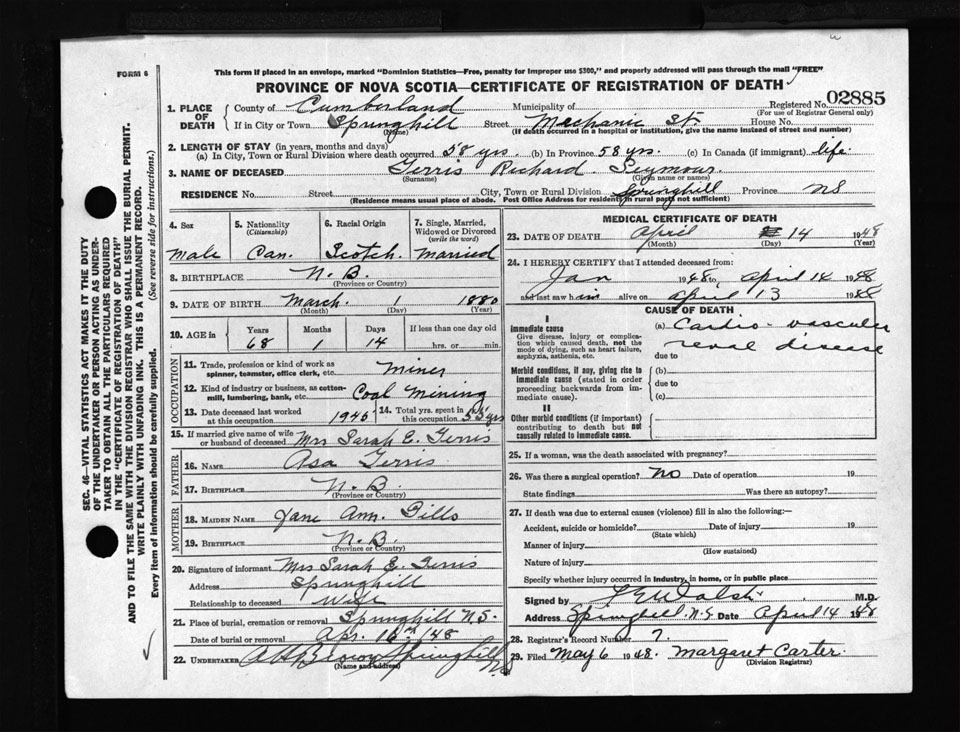 FORM 6
This form if placed in an envelope, marked "Dominion Statistics—Free, penalty for improper use $300," and properly addressed will pass through the mail "FREE"
PROVINCE OF NOVA SCOTIA—CERTIFICATE OF REGISTRATION OF DEATH
Registered No. 02885
(For use of Registrar General only)
1. PLACE OF DEATH
County of Cumberland Municipality of
If in City or Town Springhill Street Mechanic St. House No.
(Name) (If death occurred in a hospital or institution, give the name instead of street and number)
2. LENGTH OF STAY (in years, months and days)
(a) In City, Town or Rural Division where death occurred 58 yrs. (b) In Province 58 yrs. (c) In Canada (if immigrant) life.
3. NAME OF DECEASED Ferris Richard Seymour.
(Surname) (Given name or names)
RESIDENCE No. Street City, Town or Rural Division Springhill Province NS
(Residence means usual place of abode. Post Office Address for residents in rural parts not sufficient)
4. Sex
Male
5. Nationality
(Citizenship)
Can.
6. Racial Origin
Scotch.
7. Single, Married, Widowed or Divorced
(write the word)
Married
8. BIRTHPLACE N.B.
(Province or Country)
9. DATE OF BIRTH March. 1 1880
(Month) (Day) (Year)
10. AGE in
Years Months Days If less than one day old
68 1 14 hrs. or min.
OCCUPATION
11. Trade, profession or kind of work as spinner, teamster, office clerk, etc. Miner
12. Kind of industry or business, as cotton-mill, lumbering, bank, etc. Coal Mining
13. Date deceased last worked at this occupation 1945
14. Total yrs. spent in this occupation 55 yrs
15. If married give name of wife or husband of deceased Mrs Sarah E. Ferris
FATHER
16. NAME Asa Ferris
17. BIRTHPLACE N.B.
(Province or Country)
MOTHER
18. MAIDEN NAME Jane Ann. Gills
19. BIRTHPLACE N.B.
(Province or Country)
20. Signature of informant Mrs Sarah E. Ferris
Address Springhill
Relationship to deceased Wife
21. Place of burial, cremation or removal Springhill N.S.
Date of burial or removal Apr. 16th /48
22. UNDERTAKER A H Brown Springhill
(Name and address)
MEDICAL CERTIFICATE OF DEATH
23. DATE OF DEATH April 14 1948
(Month) (Day)
24. I HEREBY CERTIFY that I attended deceased from:
Jan 1948 to April 14 1948
and last saw him alive on April 13 1948
CAUSE OF DEATH
I
Immediate cause
Give disease, injury or complication which caused death, not the mode of dying, such as heart failure, asphyxia, asthenia, etc.
(a) Cardio-vascular
renal disease
due to
Morbid conditions, if any, giving rise to immediate cause (stated in order proceeding backwards from immediate cause).
(b)
due to
(c)
II
Other morbid conditions (if important) contributing to death but not causally related to immediate cause.
25. If a woman, was the death associated with pregnancy?
26. Was there a surgical operation? No Date of operation 19
State findings Was there an autopsy?
27. If death was due to external causes (violence) fill in also the following:—
Accident, suicide or homicide? Date of injury 19
(State which)
Manner of injury
(How sustained)
Nature of injury
Specify whether injury occurred in industry, in home, or in public place
Signed by Walsh M.D.
Address Springhill N.S Date April 14 1948
28. Registrar's Record Number 7.
29. Filed May 6 1948. Margaret Carter.
(Division Registrar)
SEC. 46—VITAL STATISTICS ACT MAKES IT THE DUTY OF THE UNDERTAKER OR PERSON ACTING AS UNDERTAKER TO OBTAIN ALL THE PARTICULARS REQUIRED IN THE "CERTIFICATE OF REGISTRATION OF DEATH" AND TO FILE THE SAME WITH THE DIVISION REGISTRAR WHO SHALL ISSUE THE BURIAL PERMIT.
WRITE PLAINLY WITH UNFADING INK. THIS IS A PERMANENT RECORD.
Every item of information should be carefully supplied. (See reverse side for instructions.)